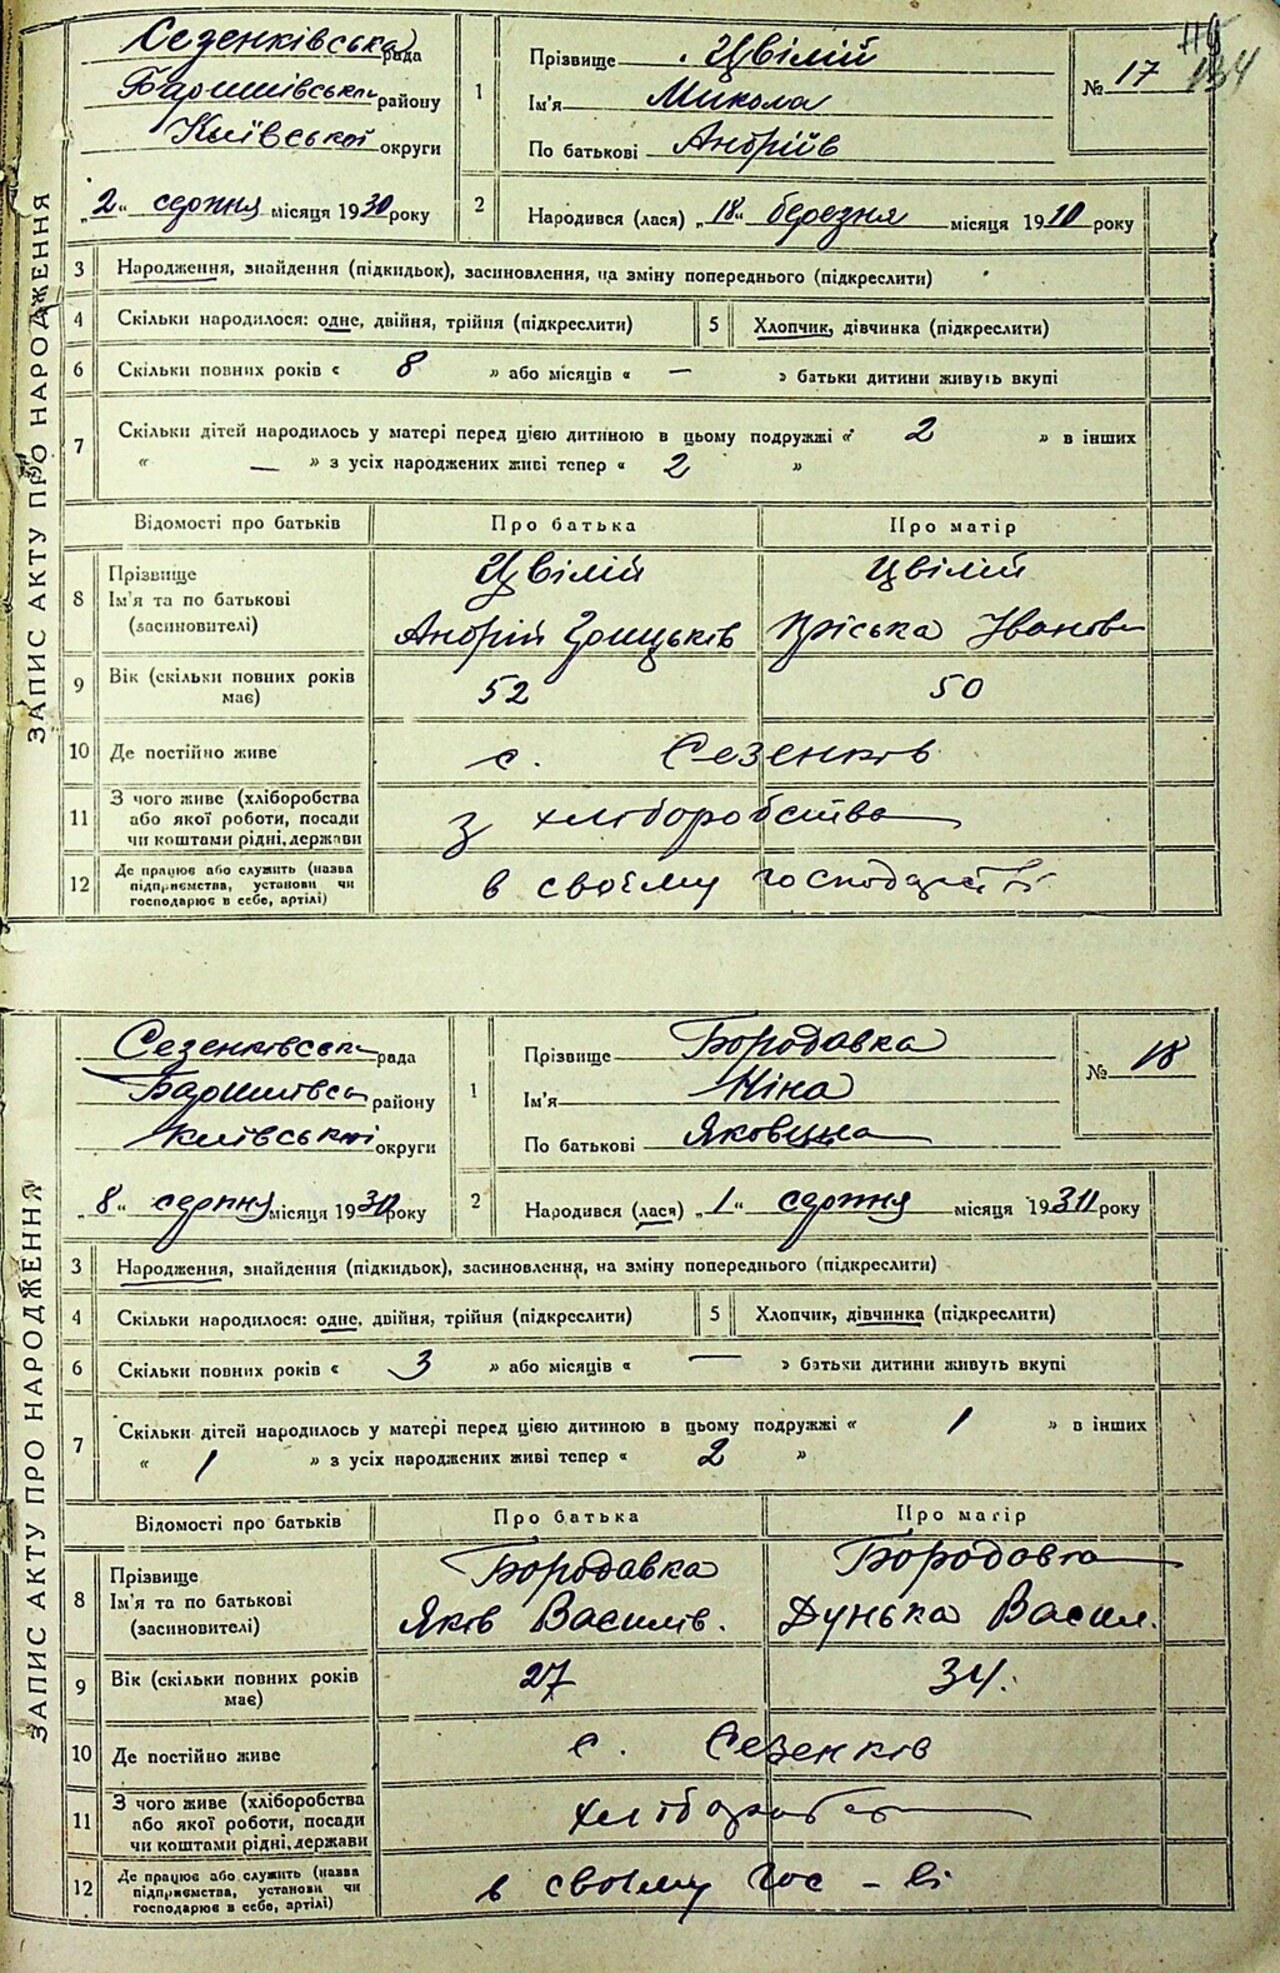 ЗАПИС АКТУ ПРО НАРОДЖЕННЯ
Сезенківська рада
Баришівська району
Київської округи
„2“ серпня місяця 1930 року
1
Прізвище Цвілій
Ім'я Микола
По батькові Андріїв
№ 17
134
2
Народився (лася) „18“ березня місяця 1910 року
3 Народження, знайдення (підкидьок), засиновлення, на зміну попереднього (підкреслити)
4 Скільки народилося: одне, двійня, трійня (підкреслити) 5 Хлопчик, дівчинка (підкреслити)
6 Скільки повних років « 8 » або місяців « — » батьки дитини живуть вкупі
7 Скільки дітей народилось у матері перед цією дитиною в цьому подружжі « 2 » в інших
« — » з усіх народжених живі тепер « 2 »
Відомості про батьків Про батька Про матір
8 Прізвище Ім'я та по батькові (засиновителі)
Цвілій Цвілій
Андрій Грицьків Пріська Іванов
9 Вік (скільки повних років має) 52 50
10 Де постійно живе с. Сезенків
11 З чого живе (хліборобства або якої роботи, посади чи коштами рідні, держави з хліборобства
12 Де працює або служить (назва підприємства, установи чи господарює в себе, артілі) в своєму господарстві
ЗАПИС АКТУ ПРО НАРОДЖЕННЯ
Сезенківська рада
Баришівсь району
Київської округи
„8“ серпня місяця 1930 року
1
Прізвище Бородавка
Ім'я Ніна
По батькові Яковівна
№ 18
2
Народився (лася) „1“ серпня місяця 19 року
3 Народження, знайдення (підкидьок), засиновлення, на зміну попереднього (підкреслити)
4 Скільки народилося: одне, двійня, трійня (підкреслити) 5 Хлопчик, дівчинка (підкреслити)
6 Скільки повних років « 3 » або місяців « — » батьки дитини живуть вкупі
7 Скільки дітей народилось у матері перед цією дитиною в цьому подружжі « 1 » в інших
« 1 » з усіх народжених живі тепер « 2 »
Відомості про батьків Про батька Про матір
8 Прізвище Ім'я та по батькові (засиновителі)
Бородавка Бородавка
Яків Василів. Дунька Васил.
9 Вік (скільки повних років має) 27 34.
10 Де постійно живе с. Сезенків
11 З чого живе (хліборобства або якої роботи, посади чи коштами рідні, держави хлібороб
12 Де працює або служить (назва підприємства, установи чи господарює в себе, артілі) в своєму гос - ві